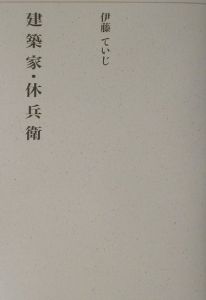 建築家・休兵衛
伊藤 ていじ